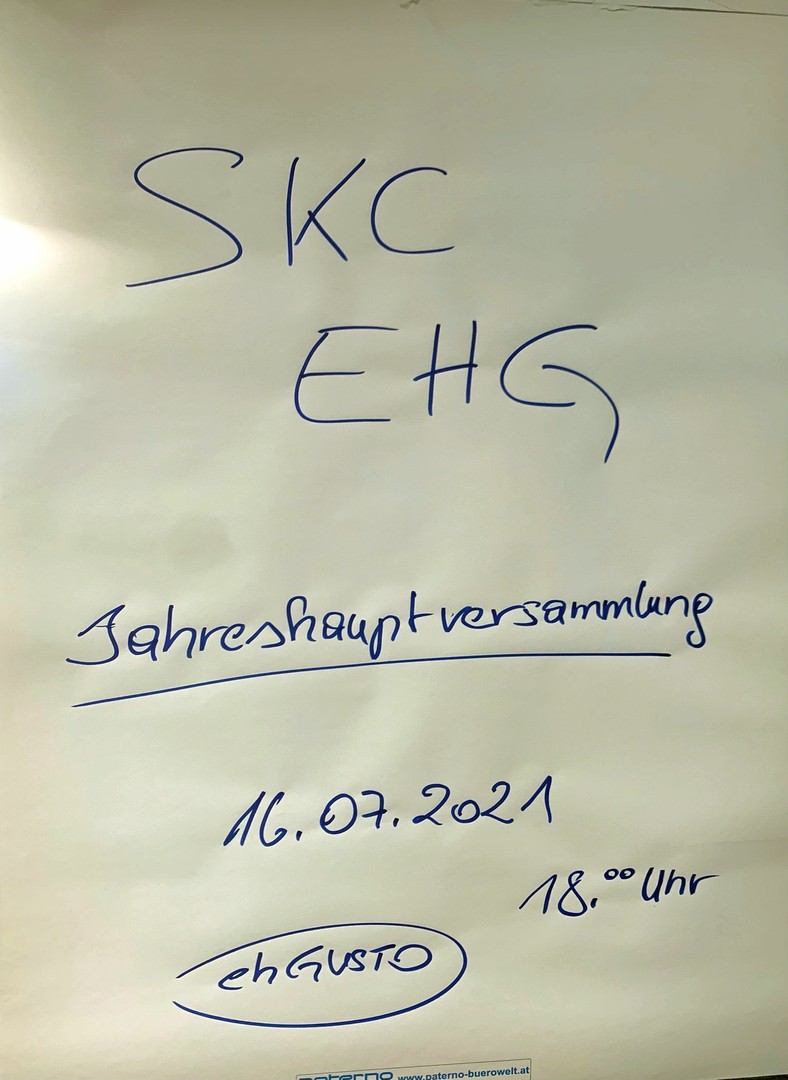 SKC
EHG
Jahreshauptversammlung
16.07.2021
18.00 Uhr
ehGUSTO
paterno www.paterno-buerowelt.at